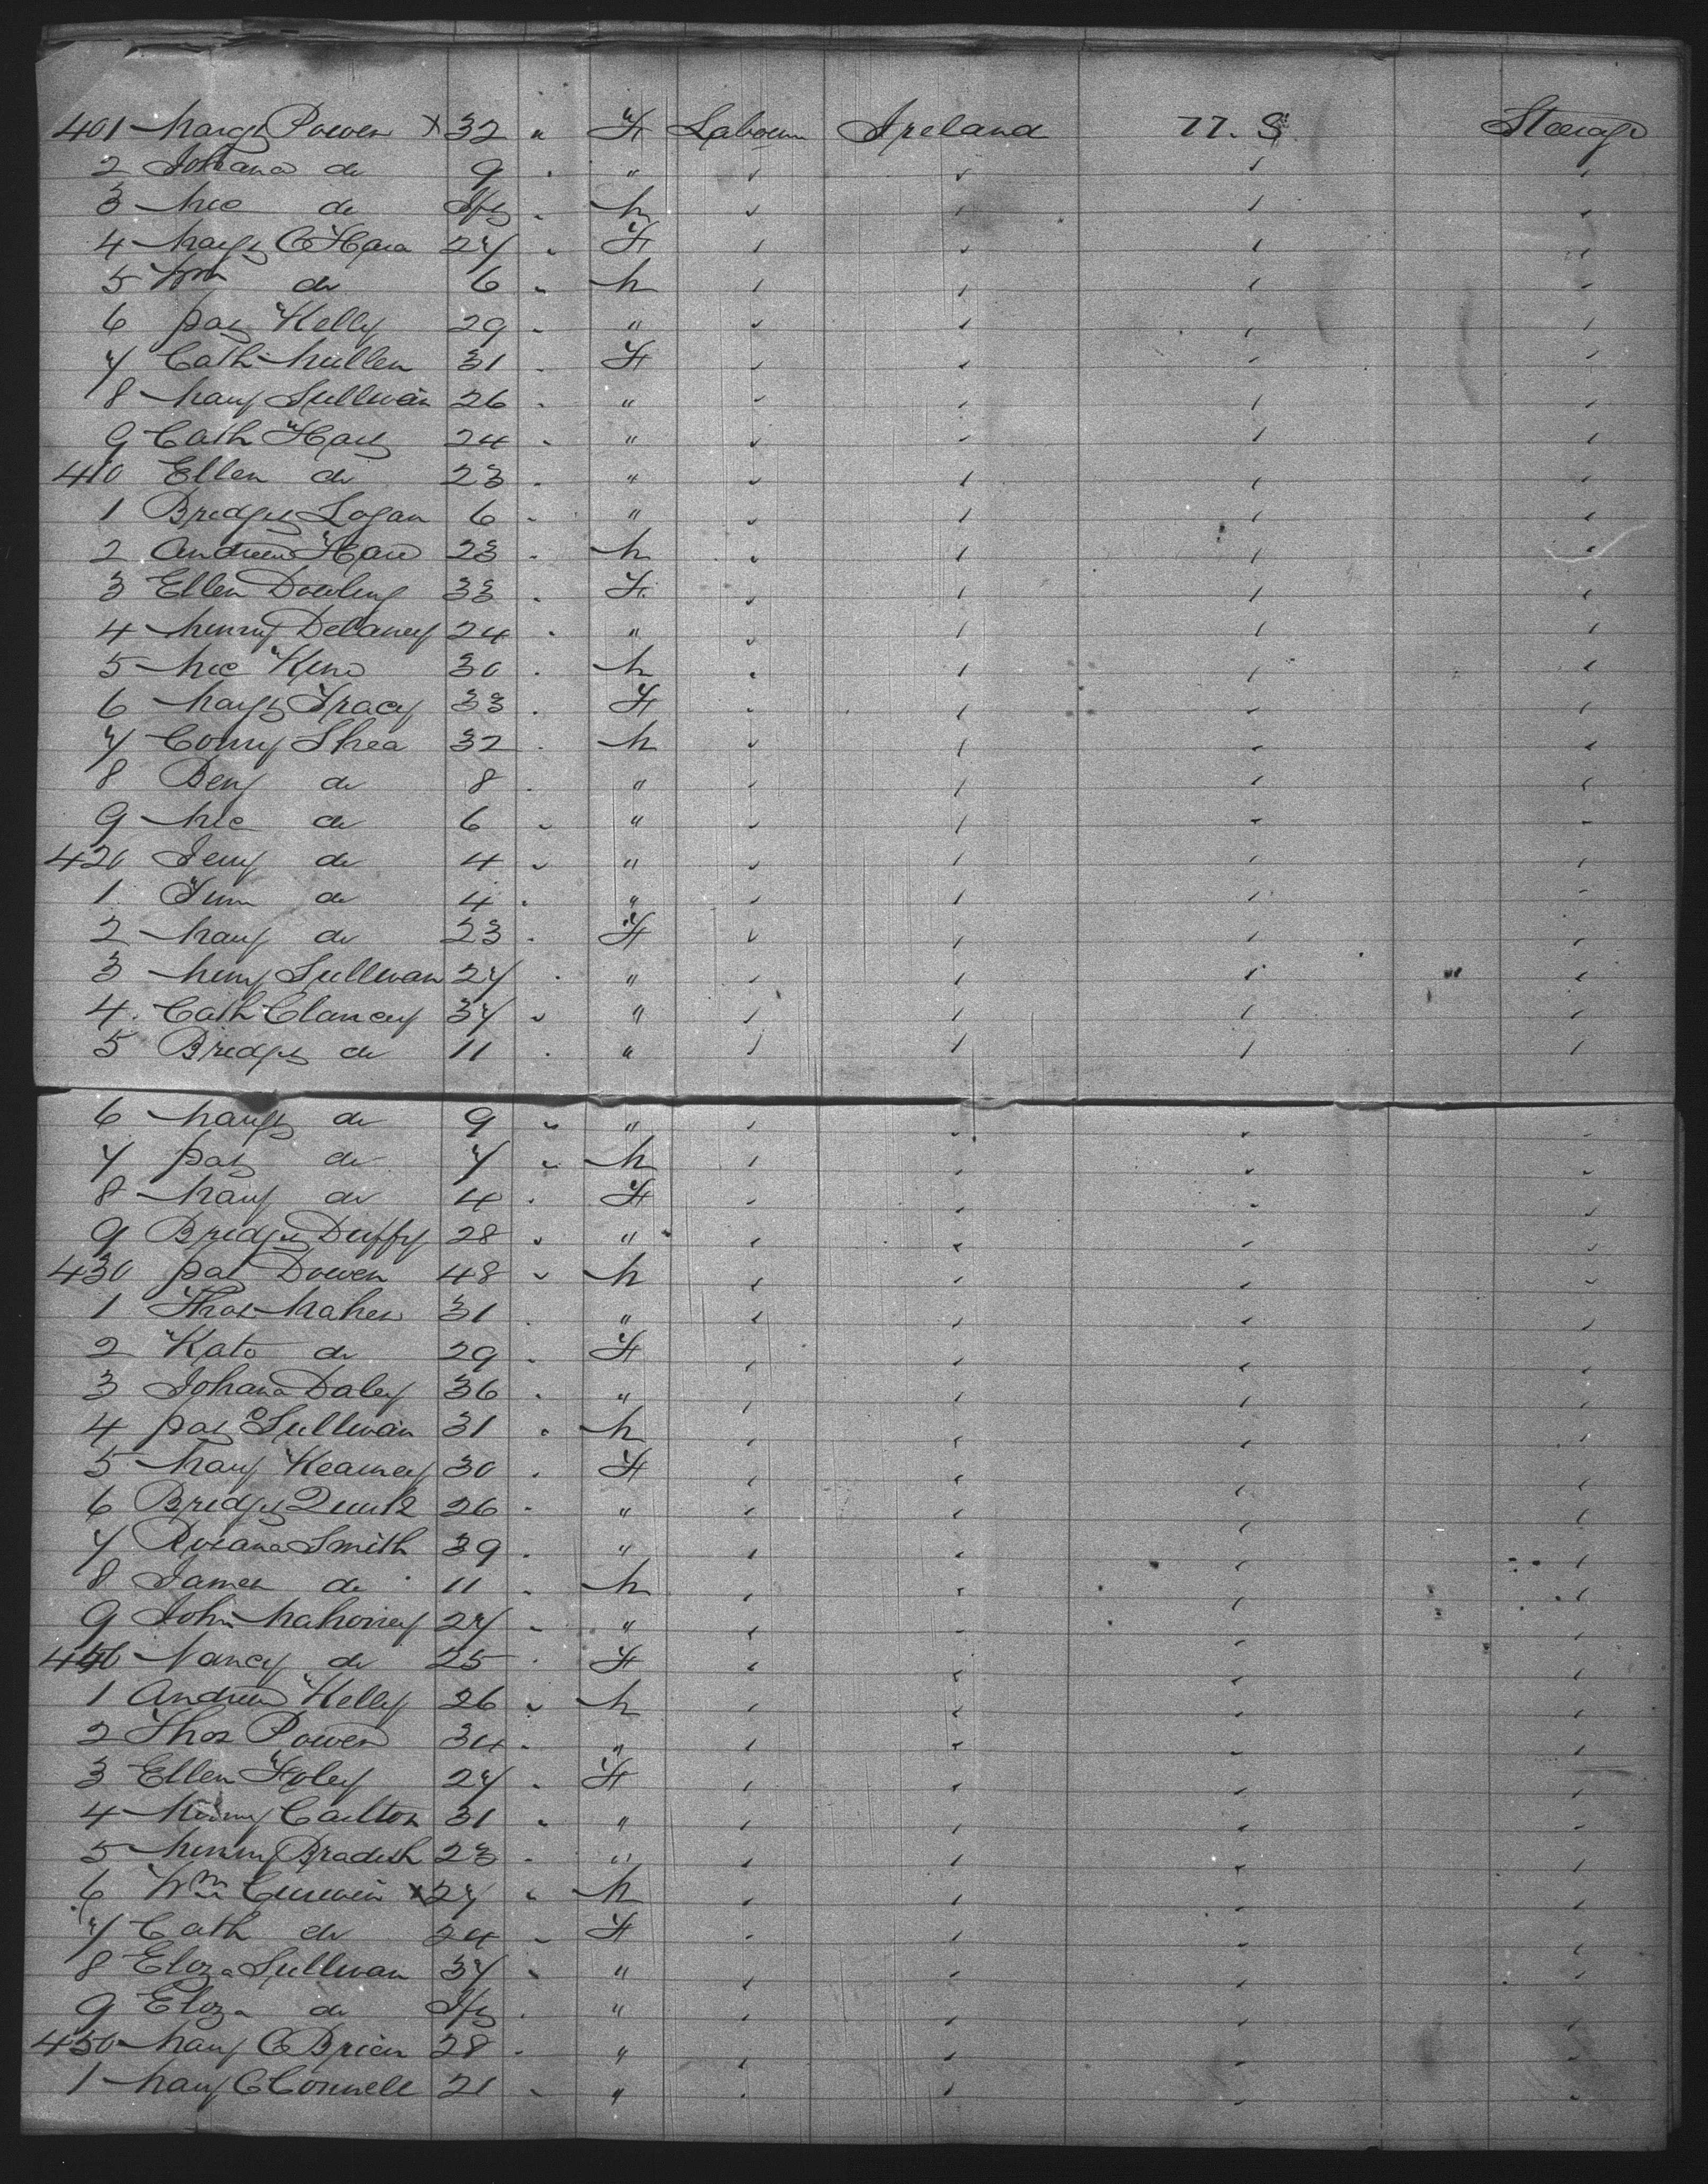 401 Margt Power X 32 " F Labourer Ireland U. S. Steerage
2 Johana do 9 " "
3 Mic do Inf " M
4 Margt O Hara 27 " F
5 Wm do 6 " M
6 Pat Kelly 29 " "
7 Cath Mullen 31 " F
8 Mary Sullivan 26 " "
9 Cath 24 " "
410 Ellen do 23 " "
1 Bridget Logan 6 " "
2 Andrew Hare 23 " M
3 Ellen Dowling 33 " F
4 Minny Delaney 24 " "
5 Mic King 30 " M
6 Margt Tracy 33 " F
7 Shea 32 " M
8 Benj do 8 " "
9 Mic do 6 " "
420 Jerry do 4 " "
1 Tim do 4 " "
2 Mary do 23 " F
3 Minny Sullivan 27 " "
4 Cath Clancey 37 " "
5 Bridget do 11 " "
6 Margt do 9 " "
7 Pat do 7 " M
8 Mary do 4 " F
9 Bridget Duffy 28 " "
430 Pat Dowen 48 " M
1 Thos Maher 31 " "
2 Kate do 29 " F
3 Johana Daley 36 " "
4 Pat O Sullivan 31 " M
5 Mary Kearney 30 " F
6 Bridget 26 " "
7 Roseana Smith 39 " "
8 James do 11 " M
9 John Mahoney 27 " "
440 Nancy do 25 " F
1 Andrew Kelly 26 " M
2 Thos Power 34 " "
3 Ellen Foley 27 " F
4 Minny Carlton 31 " "
5 Minny Bradish 23 " "
6 Wm X 27 " M
7 Cath do 24 " F
8 Eliza Sullivan 37 " "
9 Eliza do Inf " "
450 Mary O Brien 28 " "
1 Mary O Connell 21 " "